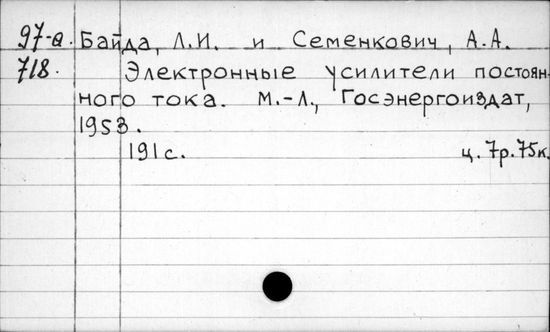 97-а. Байда, Л.И. и Семенкович, А.А.
718. Электронные усилители постоян-
ного тока. М.-Л., Госэнергоиздат,
1953.
191 с. ц. 7р.75к.